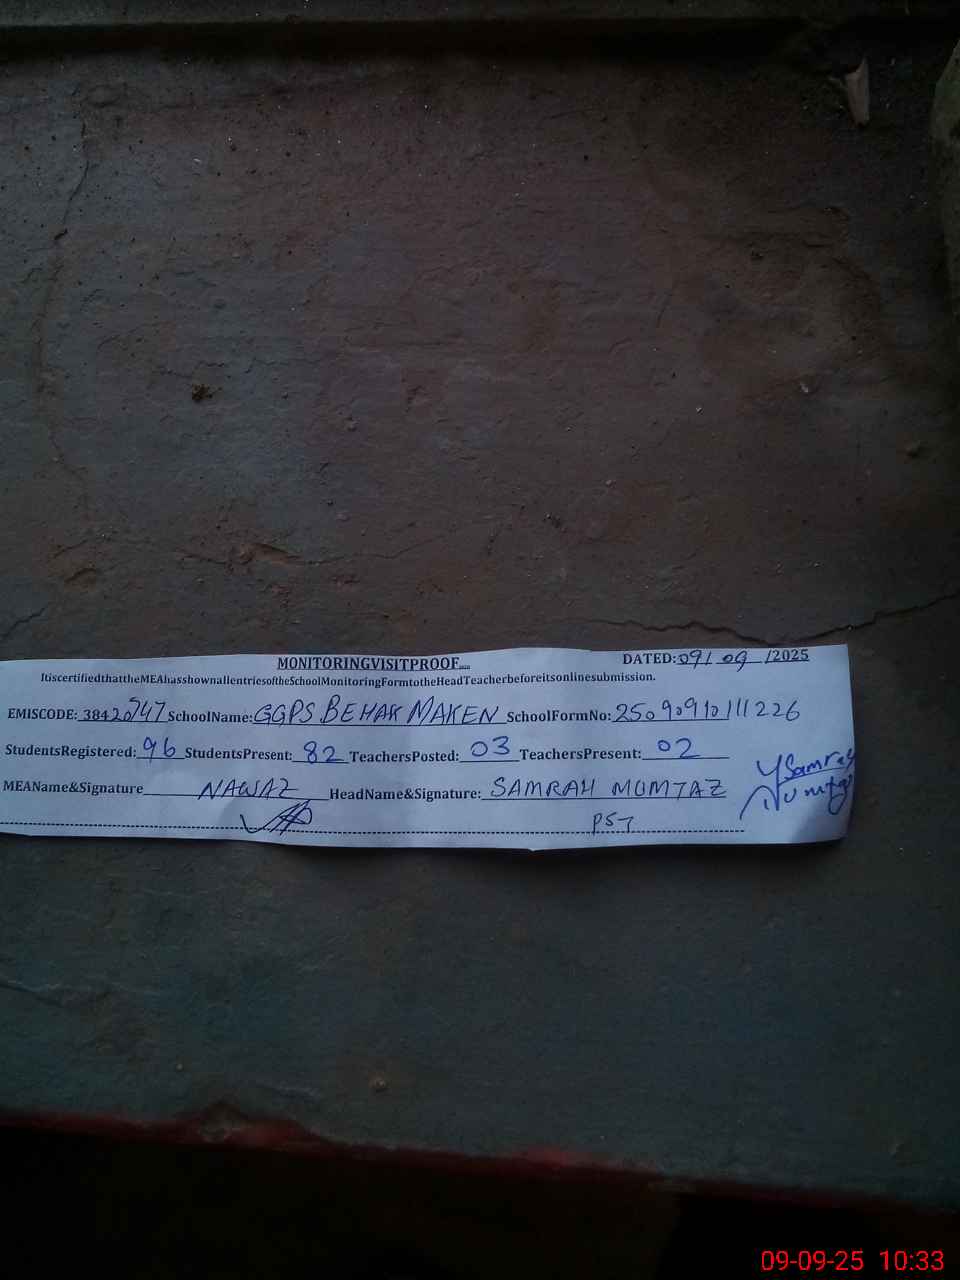 MONITORINGVISITPROOF
DATED: 09/ 09 /2025
ItiscertifiedthattheMEAhasshownallentriesoftheSchoolMonitoringFormtotheHeadTeacherbeforeitsonlinesubmission.
EMISCODE: 38420747 SchoolName: GGPS BEHAK MAKEN SchoolFormNo: 25090910111226
StudentsRegistered: 96 StudentsPresent: 82 TeachersPosted: 03 TeachersPresent: 02
MEAName&Signature NAWAZ HeadName&Signature: SAMRAH MUMTAZ
Samrah
Mumtaz
PST
09-09-25 10:33